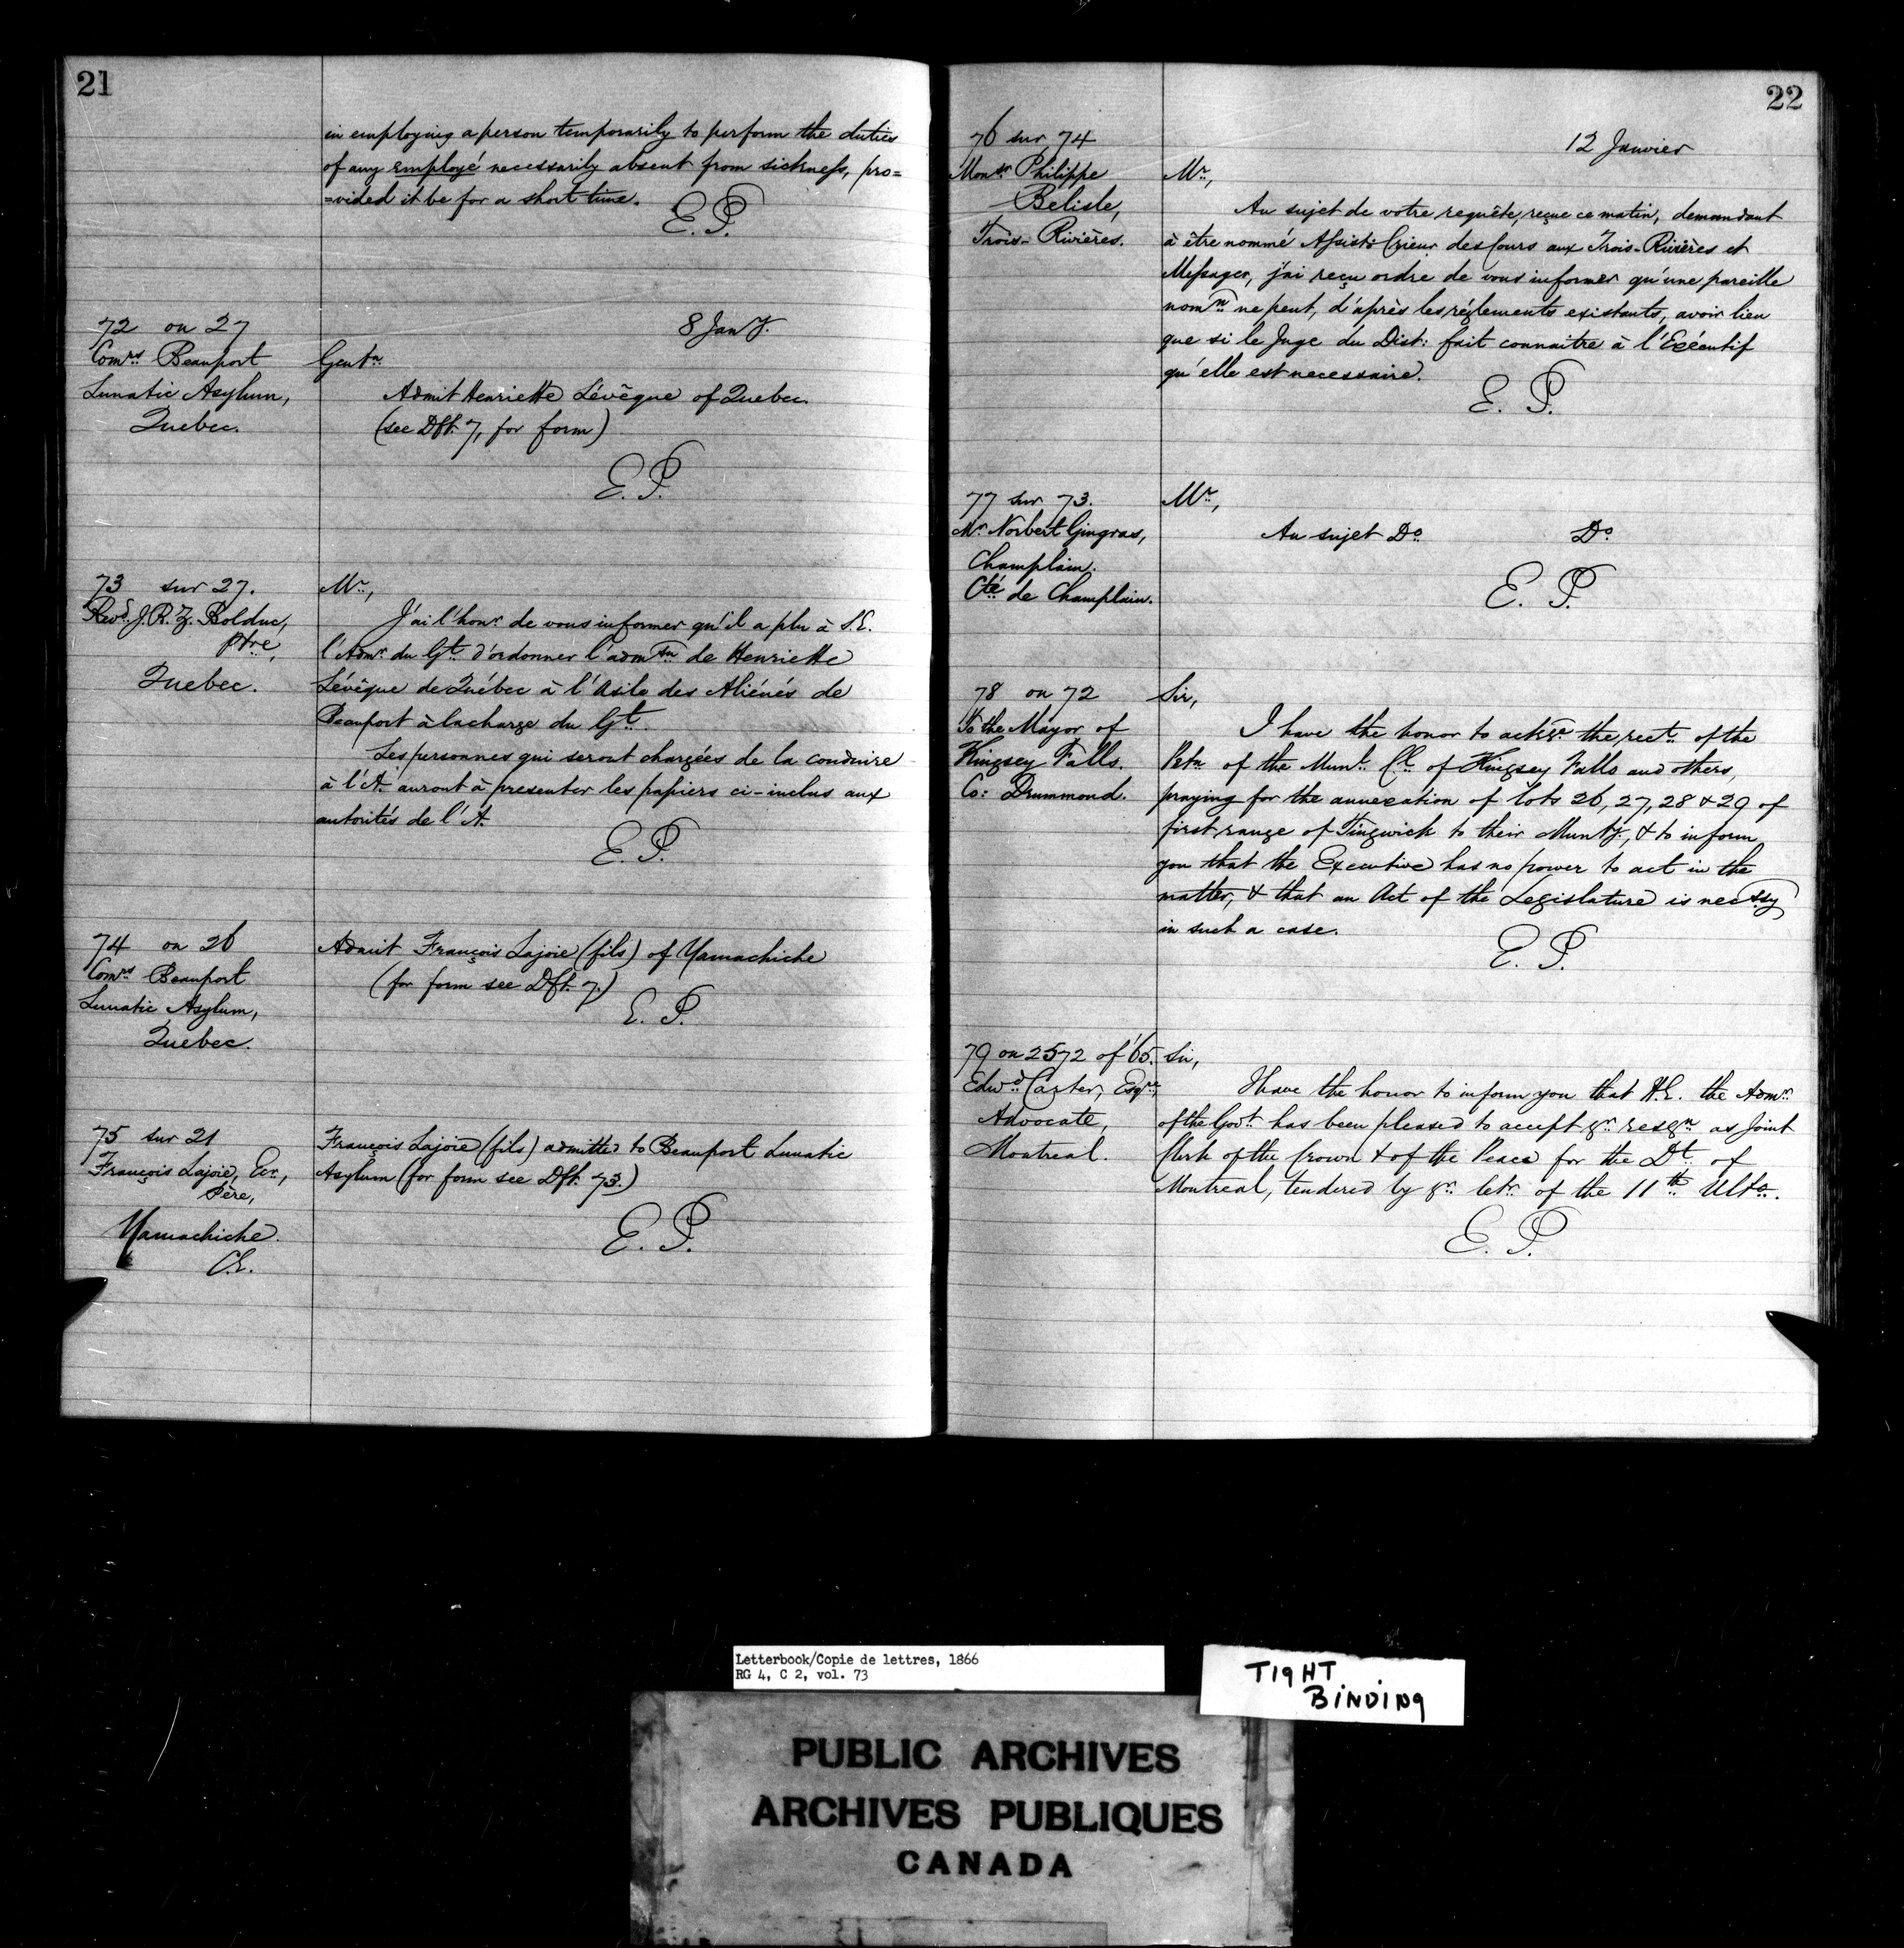 21
in employing a person temporarily to perform the duties
of any employé necessarily absent from sickness, pro=
=vided it be for a short time.
E. P.
72 on 27
Comrs Beauport
Lunatic Asylum,
Quebec.
8 Jany.
Gentn
Admit Henriette Lévêque of Quebec
(see Dft. 7, for form)
E. P.
73 sur 27.
Revd. J. R. Z. Bolduc,
Ptre,
Quebec.
Mr.,
J'ai l'honr de vous informer qu'il a plu à S.E.
l'Admr du Gt d'ordonner l'admtn de Henriette
Lévêque de Québec à l'Asile des Aliénés de
Beauport à la charge du Gt.
Les personnes qui seront chargées de la conduire
à l'A. auront à presenter les papiers ci-inclus aux
autorités de l'A.
E. P.
74 on 26
Comrs Beauport
Lunatic Asylum,
Quebec.
Admit François Lajoie (fils) of Yamachiche
(for form see Dft. 7.)
E. P.
75 sur 21
François Lajoie, Ecr.,
Père,
Yamachiche.
C.E.
François Lajoie (fils) admitted to Beauport Lunatic
Asylum (for form see Dft. 73.)
E. P.
22
76 sur 74
Monsr Philippe
Belisle,
Trois-Rivières.
12 Janvier
Mr.,
Au sujet de votre requête, reçue ce matin, demandant
à être nommé Assist: Crieur des Cours aux Trois-Rivières et
Messager, j'ai reçu ordre de vous informer qu'une pareille
nomn ne peut, d'après les réglements existants, avoir lieu
que si le Juge du Dist: fait connaitre à l'Exécutif
qu'elle est necessaire.
E. P.
77 sur 73.
Mr Norbert Gingras,
Champlain.
Cté de Champlain.
Mr.,
Au sujet Do Do
E. P.
78 on 72
To the Mayor of
Kingsey Falls.
Co: Drummond.
Sir,
I have the honor to ackge the rect. of the
Petn of the Munl. Cl. of Kingsey Falls and others,
praying for the annexation of lots 26, 27, 28 & 29 of
first range of Tingwick to their Munty., & to inform
you that the Executive has no power to act in the
matter, & that an Act of the Legislature is necssy
in such a case.
E. P.
79 on 2572 of '65.
Edwd Carter, Esqre,
Advocate,
Montreal.
Sir,
I have the honor to inform you that H.E. the Admr.
of the Govt. has been pleased to accept yr. resgn. as Joint
Clerk of the Crown & of the Peace for the Dt. of
Montreal, tendered by yr. letr. of the 11th Ulto.
E. P.
Letterbook/Copie de lettres, 1866
RG 4, C 2, vol. 73
TIGHT
BINDING
PUBLIC ARCHIVES
ARCHIVES PUBLIQUES
CANADA